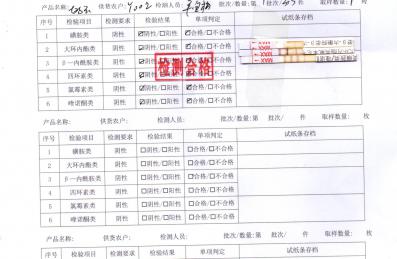 产品名称: 供货农户: Y002 检测人员: 批次/数量:第 1 批次/ 取样数量: 1 枚
序号 检验项目 检测要求 检验结果 单项判定 试纸条存档
1 磺胺类 阴性 ☑阴性/□阳性 ☑合格/□不合格
2 大环内酯类 阴性 ☑阴性/□阳性 ☑合格/□不合格
3 β一内酰胺类 阴性 ☑阴性/□阳性 ☑合格/□不合格
4 四环素类 阴性 ☑阴性/□阳性 ☑合格/□不合格
5 氯霉素类 阴性 ☑阴性/□阳性 ☑合格/□不合格
6 喹诺酮类 阴性 ☑阴性/□阳性 ☑合格/□不合格
检测合格
产品名称: 供货农户: 检测人员: 批次/数量:第 批次/ 件 取样数量: 枚
序号 检验项目 检测要求 检验结果 单项判定 试纸条存档
1 磺胺类 阴性 □阴性/□阳性 □合格/□不合格
2 大环内酯类 阴性 □阴性/□阳性 □合格/□不合格
3 β一内酰胺类 阴性 □阴性/□阳性 □合格/□不合格
4 四环素类 阴性 □阴性/□阳性 □合格/□不合格
5 氯霉素类 阴性 □阴性/□阳性 □合格/□不合格
6 喹诺酮类 阴性 □阴性/□阳性 □合格/□不合格
产品名称: 供货农户: 检测人员: 批次/数量:第 批次/ 件 取样数量: 枚
序号 检验项目 检测要求 检验结果 单项判定 试纸条存档